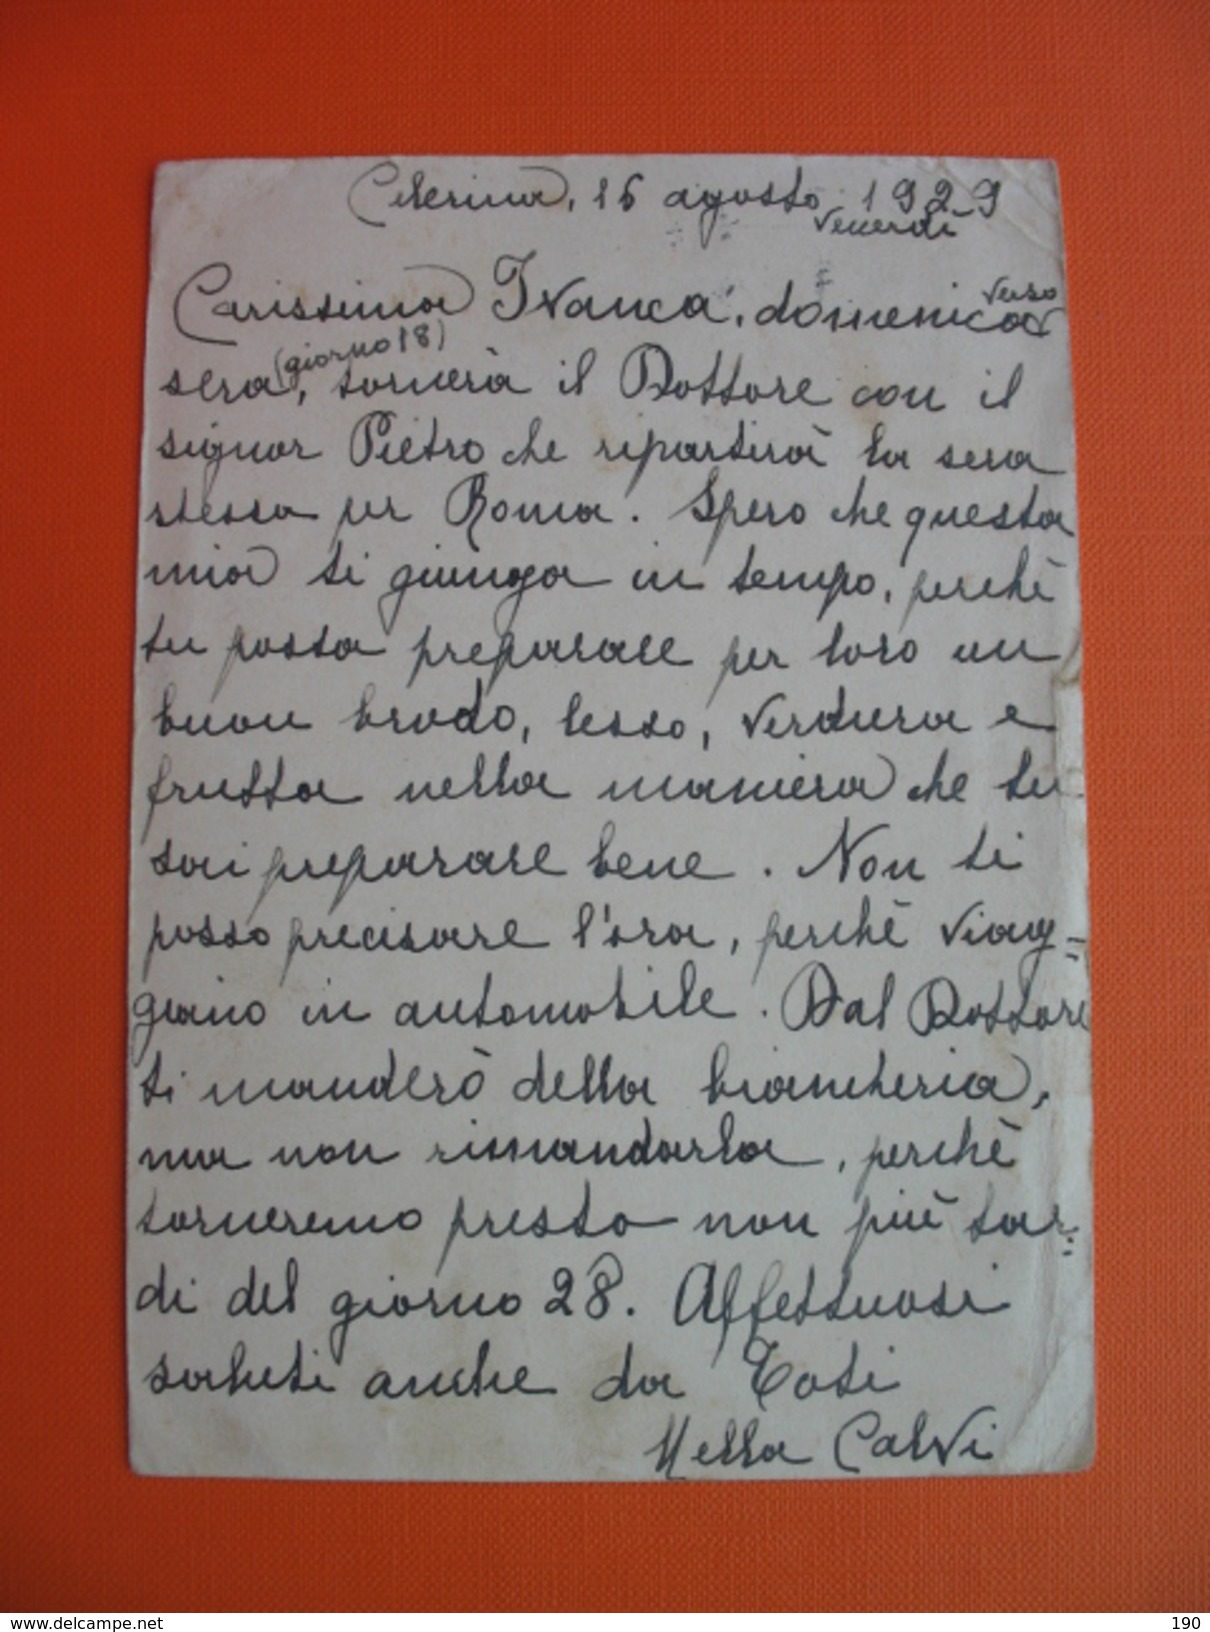 Celerina, 16 agosto 1929
Venerdì
Carissima Ivanca, domenica verso
sera (giorno 18), tornerà il Dottore con il
signor Pietro che ripartirà la sera
stessa per Roma. Spero che questa
mia ti giunga in tempo, perchè
tu possa preparare per loro un
buon brodo, lesso, verdura e
frutta nella maniera che tu
sai preparare bene. Non ti
posso precisare l'ora, perchè viag=
giano in automobile. Dal Dottore
ti manderò della biancheria,
ma non rimandarla, perchè
torneremo presto non più tar=
di del giorno 28. Affettuosi
saluti anche da Toti
Nella Calvi
www.delcampe.net
Janko
190